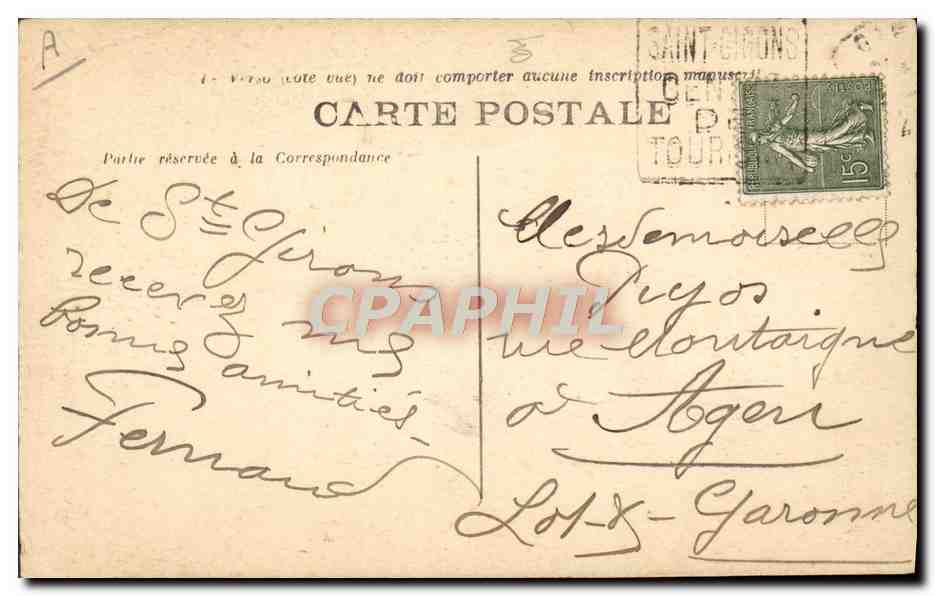 A
Le Verso (côté vue) ne doit comporter aucune inscription manuscrite
CARTE POSTALE
Partie réservée à la Correspondance
SAINT-GIRONS
CENTRE
DE
TOURISME
REPUBLIQUE FRANÇAISE
POSTES
15c
De St Girons
recevez mes
bonnes amitiés -
Fernand
Mesdemoiselles
Puyos
rue Montaigne
à Agen
Lot-&-Garonne
CPAPHIL